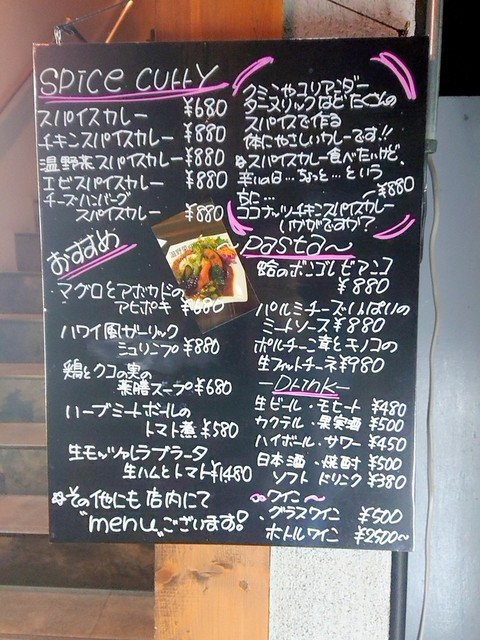 SPICE CURRY
スパイスカレー ¥680
チキンスパイスカレー ¥880
温野菜スパイスカレー ¥880
エビスパイスカレー ¥880
チーズハンバーグ
スパイスカレー ¥880
おすすめ
マグロとアボカドの
アヒポキ ¥680
ハワイ風ガーリック
シュリンプ ¥880
鶏とクコの実の
薬膳スープ ¥680
ハーブミートボールの
トマト煮 ¥580
生モッツァレラブラータ
生ハムとトマト ¥1480
その他にも店内にて
"menu"ございます!
クミンやコリアンダー
ターメリックなどたくさんの
スパイスで作る
体にやさしいカレーです!!
スパイスカレー食べたいけど、
辛いのは…ちょっと…という
方に… ¥880
ココナッツチキンスパイスカレー
いかがですか?
Pasta~
蛤のボンゴレビアンコ
¥880
パルミチーズいっぱいの
ミートソース ¥880
ポルチーニ茸とキノコの
生フィットチーネ ¥980
-Drink-
生ビール・モヒート ¥480
カクテル・果実酒 ¥500
ハイボール・サワー ¥450
日本酒・焼酎 ¥500
ソフトドリンク ¥380
ワイン~
グラスワイン ¥500
ボトルワイン ¥2500~